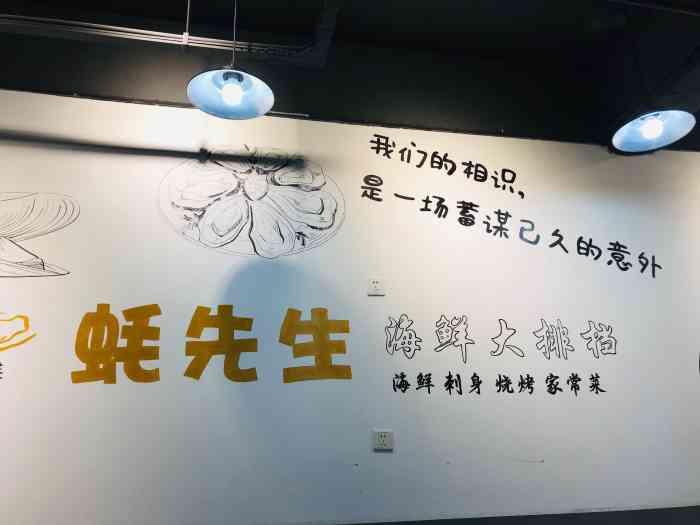 我们的相识,
是一场蓄谋已久的意外
蚝先生
海鲜大排档
海鲜 刺身 烧烤 家常菜